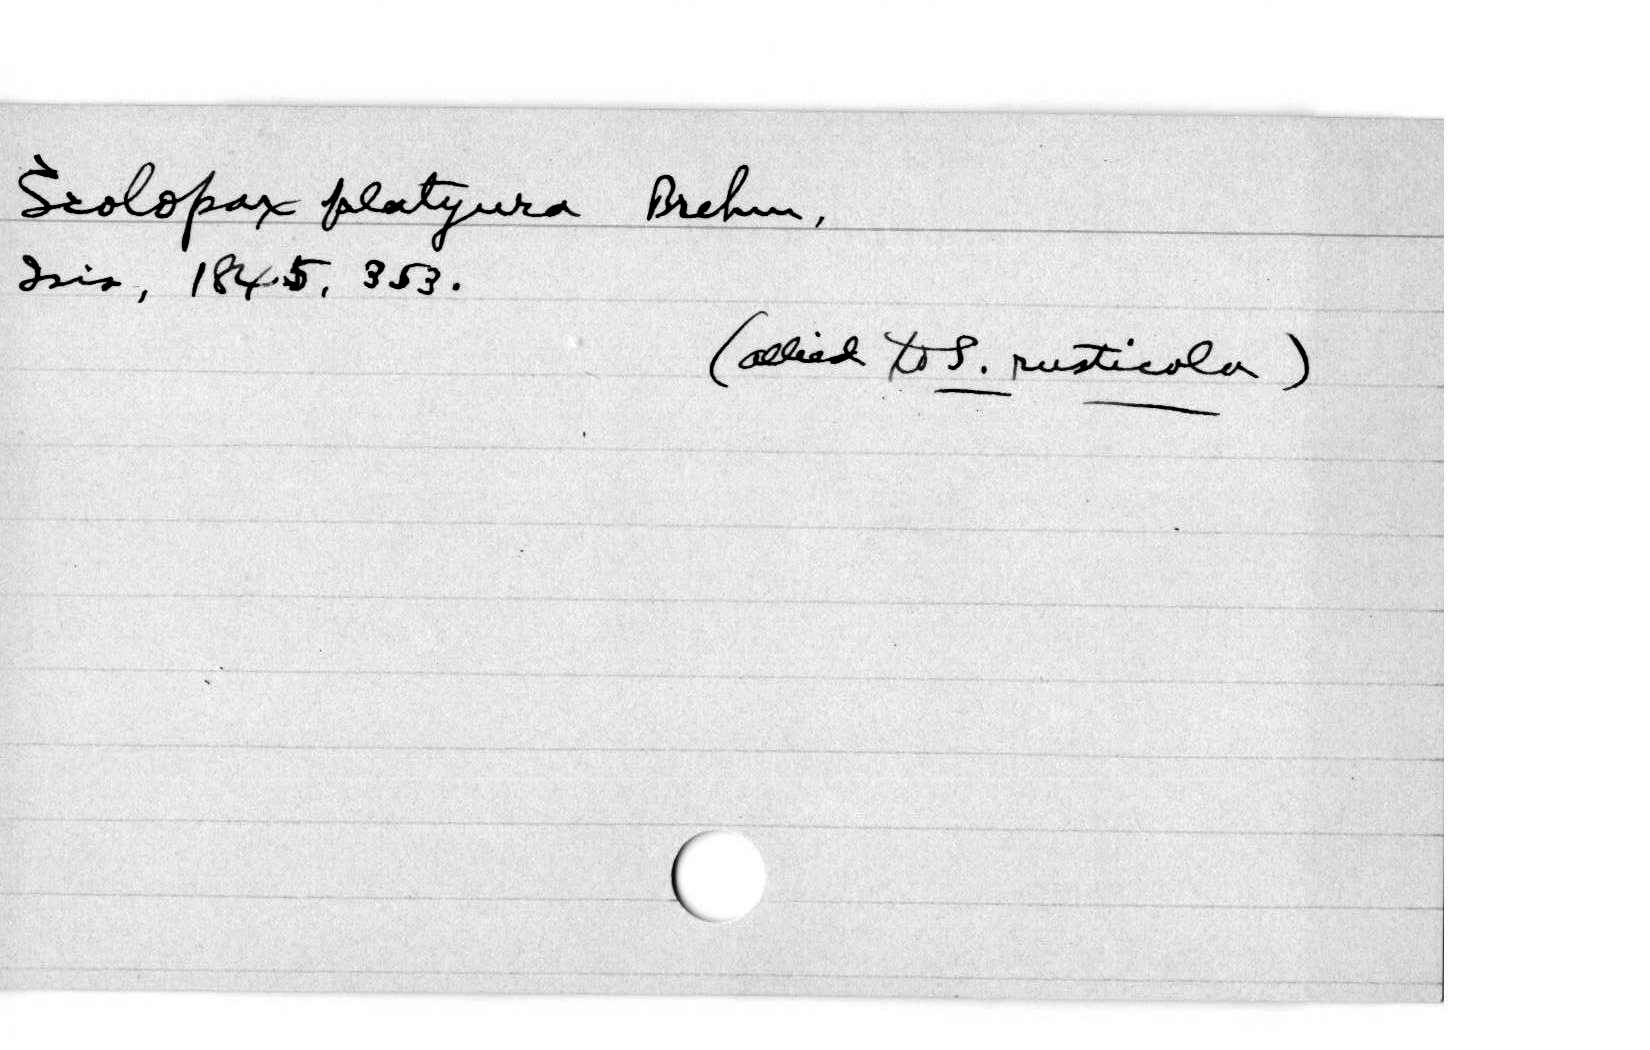 Scolopax platyura Brehm,
Isis, 1845, 353.
(allied to S. rusticola)